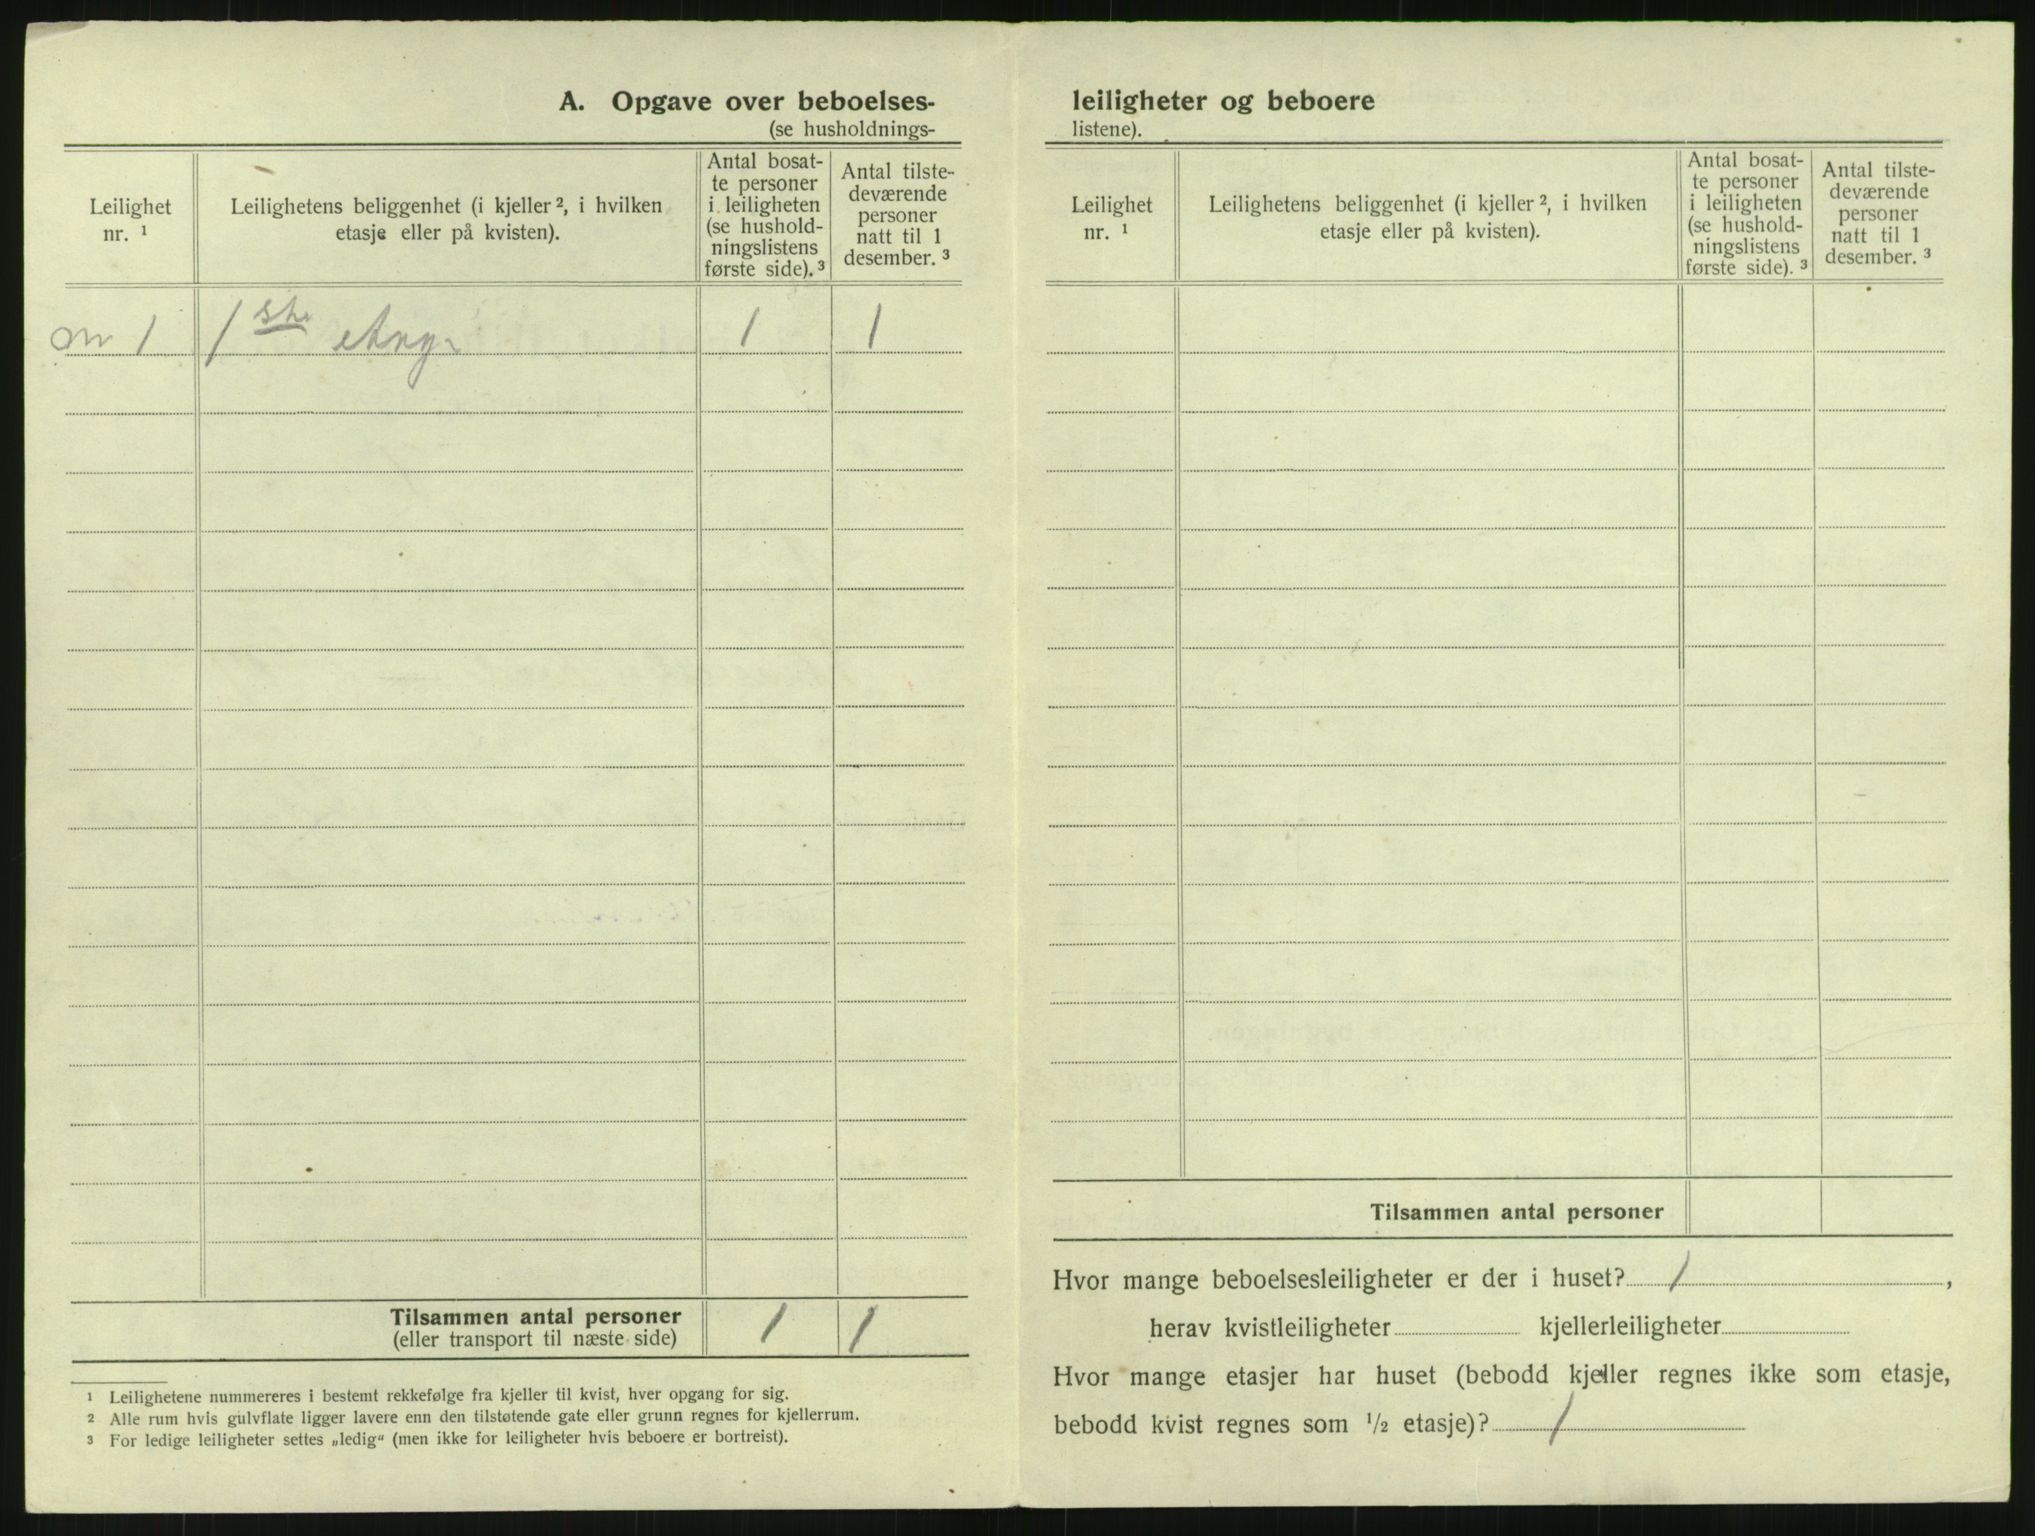 A. Opgave over beboelses-
(se husholdnings-
Leilighet nr. ¹
Leilighetens beliggenhet (i kjeller ², i hvilken etasje eller på kvisten).
Antal bosat-
te personer
i leiligheten
(se hushold-
ningslistens
første side). ³
Antal tilste-
deværende
personer
natt til 1
desember. ³
1 1ste 1 1
Tilsammen antal personer 1 1
(eller transport til næste side)
¹ Leilighetene nummereres i bestemt rekkefølge fra kjeller til kvist, hver opgang for sig.
² Alle rum hvis gulvflate ligger lavere enn den tilstøtende gate eller grunn regnes for kjellerrum.
³ For ledige leiligheter settes „ledig“ (men ikke for leiligheter hvis beboere er bortreist).
leiligheter og beboere
listene).
Leilighet nr. ¹
Leilighetens beliggenhet (i kjeller ², i hvilken etasje eller på kvisten).
Antal bosat-
te personer
i leiligheten
(se hushold-
ningslistens
første side). ³
Antal tilste-
deværende
personer
natt til 1
desember. ³
Tilsammen antal personer
Hvor mange beboelsesleiligheter er der i huset? 1 ,
herav kvistleiligheter kjellerleiligheter
Hvor mange etasjer har huset (bebodd kjeller regnes ikke som etasje,
bebodd kvist regnes som ½ etasje)? 1